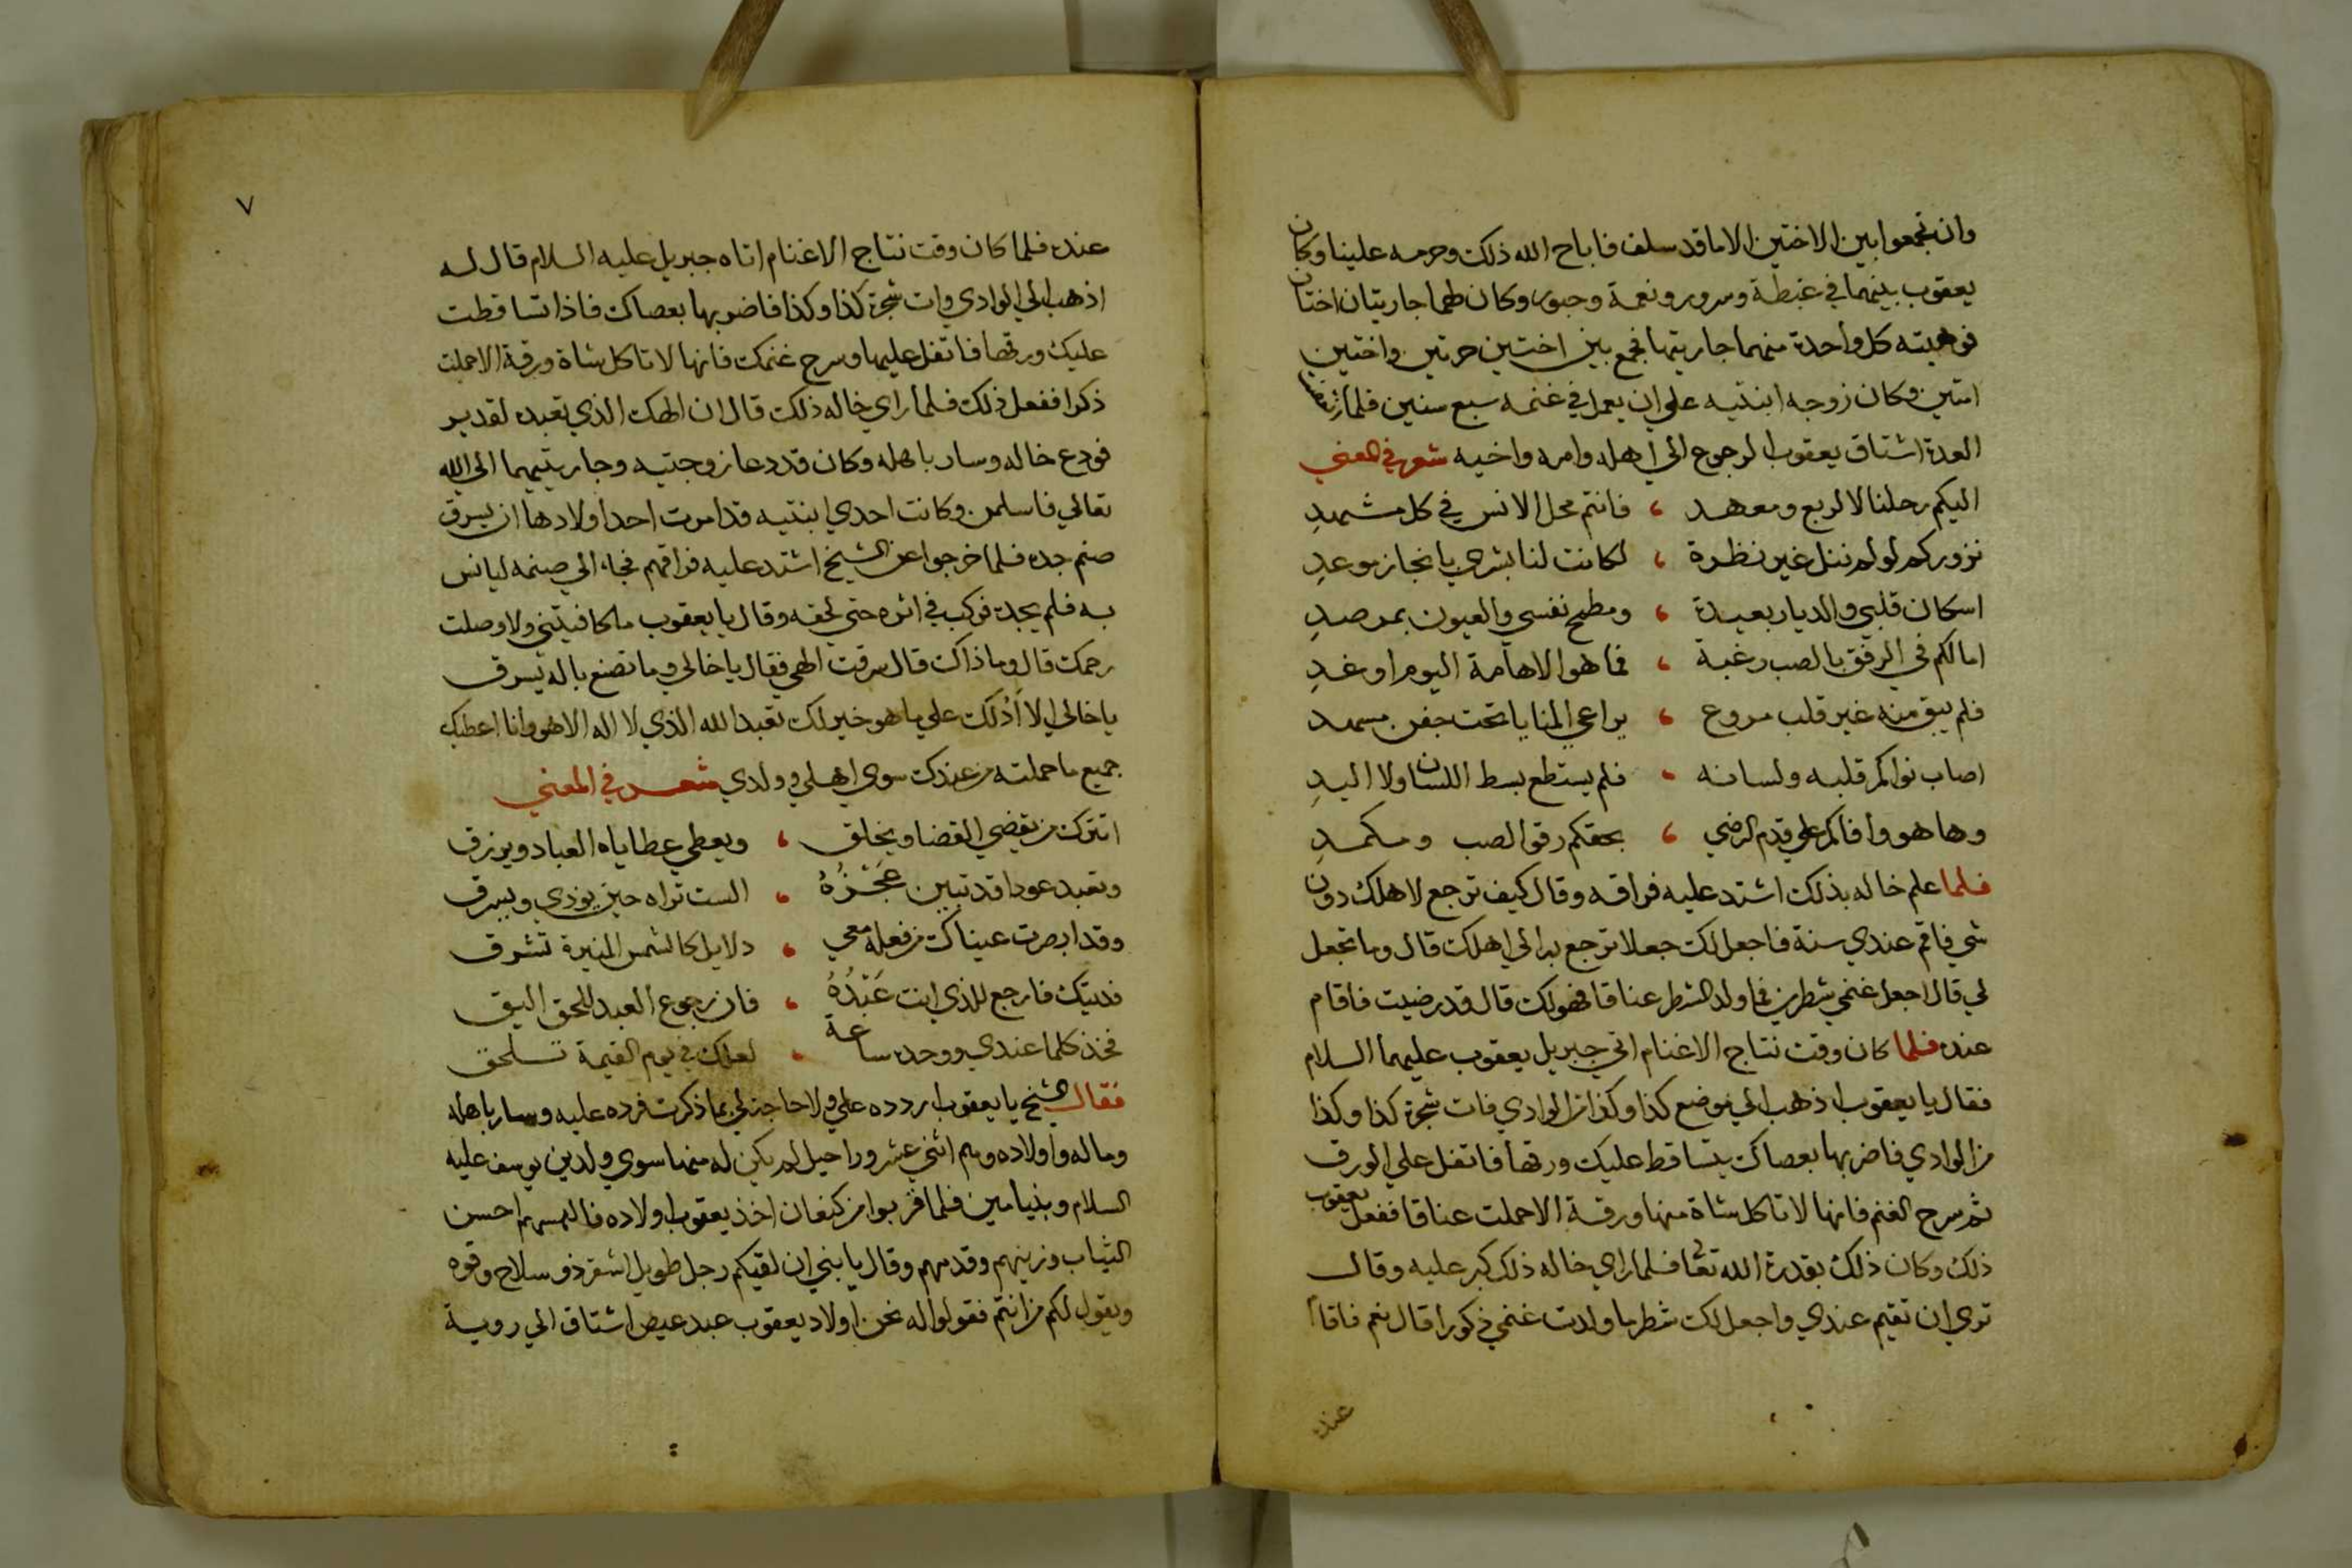 وان تجمعوا بين الاختين الا ما قد سلف فاباح الله ذلك وحرمه علينا وكان
يعقوب بينهما في غبطة وسرور ونعمة وحبور وكان لهما جاريتان اختان
فوهبته كل واحدة منهما جاريتها فجمع بين اختين حرتين واختين
امتين وكان زوجه ابنتيه علي ان يعمل في غنمه سبع سنين فلما
المدة اشتاق يعقوب الرجوع الي اهله وامه واخيه شعر في المعني
اليكم رحلنا لا لربع ومعهد ، فانتم محل الانس في كل مشهدِ
نزوركم لو لم ننل غير نظرة ، لكانت لنا بشري بانجاز موعدِ
اسكان قلبي والديار بعيدة ، ومطمح نفسي والعيون بمرصدِ
امالكم في الرفق بالصب رغبة ، فما هو الا هامة اليوم او غدِ
فلم يبق منه غير قلب مروع ، يراعي المنايا تحت جفن مسهد
اصاب نواكم قلبه ولسانه ، فلم يستطع بسط اللسان ولا اليدِ
وها هو وافاكم علي قدم الرضي ، بحقكم رقوا لصب ومكمدِ
فلما علم خاله بذلك اشتد عليه فراقه وقال كيف ترجع لاهلك دون
شي فاقم عندي سنة فاجعل لك جعلا ترجع به الي اهلك قال وما تجعل
لي قال اجعل غنمي شطرين فما ولد الشطر عناقا فهو لك قال قد رضيت فاقام
عنده فلما كان وقت نتاج الاغنام اتي جبريل يعقوب عليهما السلام
فقال يا يعقوب اذهب الي موضع كذا وكذا من الوادي فات شجرة كذا وكذا
من الوادي فاضربها بعصاك يتساقط عليك ورقها فاتفل علي الورق
ثم سرح الغنم فانها لا تاكل شاة منها ورقة الا حملت عناقا ففعل يعقوب
ذلك وكان ذلك بقدرة الله تعا فلما راي خاله ذلك كبر عليه وقال
تري ان تقيم عندي واجعل لك شطر ما ولدت غنمي ذكورا قال نعم فاقام
عنده
٧
عنده فلما كان وقت نتاج الاغنام اتاه جبريل عليه السلام قال له
اذهب الي الوادي وات شجرة كذا وكذا فاضربها بعصاك فاذا تساقطت
عليك ورقها فاتفل عليها وسرح غنمك فانها لا تاكل شاة ورقة الا حملت
ذكرا ففعل ذلك فلما راي خاله ذلك قال ان الهك الذي تعبده لقدير
فودع خاله وسار باهله وكان قد دعا زوجتيه وجاريتيهما الي الله
تعالي فاسلمن وكانت احدي ابنتيه قد امرت احد اولادها ان يسرق
صنم جده فلما خرجوا عن الشيخ اشتد عليه فراقهم فجاء الي صنمه ليانس
به فلم يجده فركب في اثره حتي لحقه وقال يا يعقوب ما كافيتني ولا وصلت
رحمك قال وما ذاك قال سرقت الهي فقال يا خالي وما تصنع باله يسرق
يا خالي الا اَدُلك علي ما هو خير لك تعبد الله الذي لا اله الا هو وانا اعطيك
جميع ما حملته من عندك سوي اهلي وولدي شعر في المعني
اتترك من يقضي القضا ويخلق ، ويعطي عطاياه العباد ويرزق
وتعبد عودا قد تبين عَجْزُهُ ، الست تراه حين يوذي ويسرق
وقد ابصرت عيناك من فعله معي ، دلايل كالشمس المنيرة تشرق
فديتك فارجع للذي انت عَبْدُهُ ، فان رجوع العبد للحق اليق
فخذ كلما عندي ووحده ساعة ، لعلك في يوم القيمة تلحق
فقال الشيخ يا يعقوب اردده علي ولا حاجة لي بما ذكرت فرده عليه وسار باهله
وماله واولاده وهم اثني عشر وراحيل لم يكن له منها سوي ولدين يوسف عليه
السلام وبنيامين فلما قربوا من كنعان اخذ يعقوب اولاده فالبسهم احسن
الثياب وزينهم وقدمهم وقال يا بني ان لقيكم رجل طويل اشقر ذو سلاح وقوه
ويقول لكم من انتم فقولوا له نحن اولاد يعقوب عبد عيص اشتاق الي روية